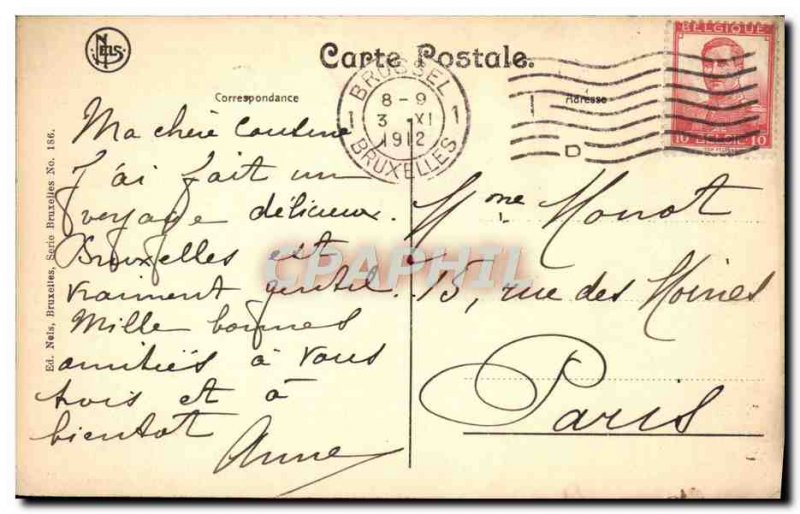 NELS
Carte Postale.
Correspondance
Adresse
BRUSSEL
8-9
1 3 XI 1
1912
BRUXELLES
D
BELGIQUE
10 BELGIË 10
Ma chère Cousine
J'ai fait un
voyage délicieux.
Bruxelles est
vraiment gentil.
Mille bonnes
amitiés à vous
trois et à
bientot
Anne
Mme Monot
15, rue des Moines
Paris
Ed. Nels, Bruxelles, Serie Bruxelles No. 186.
CPAPHIL